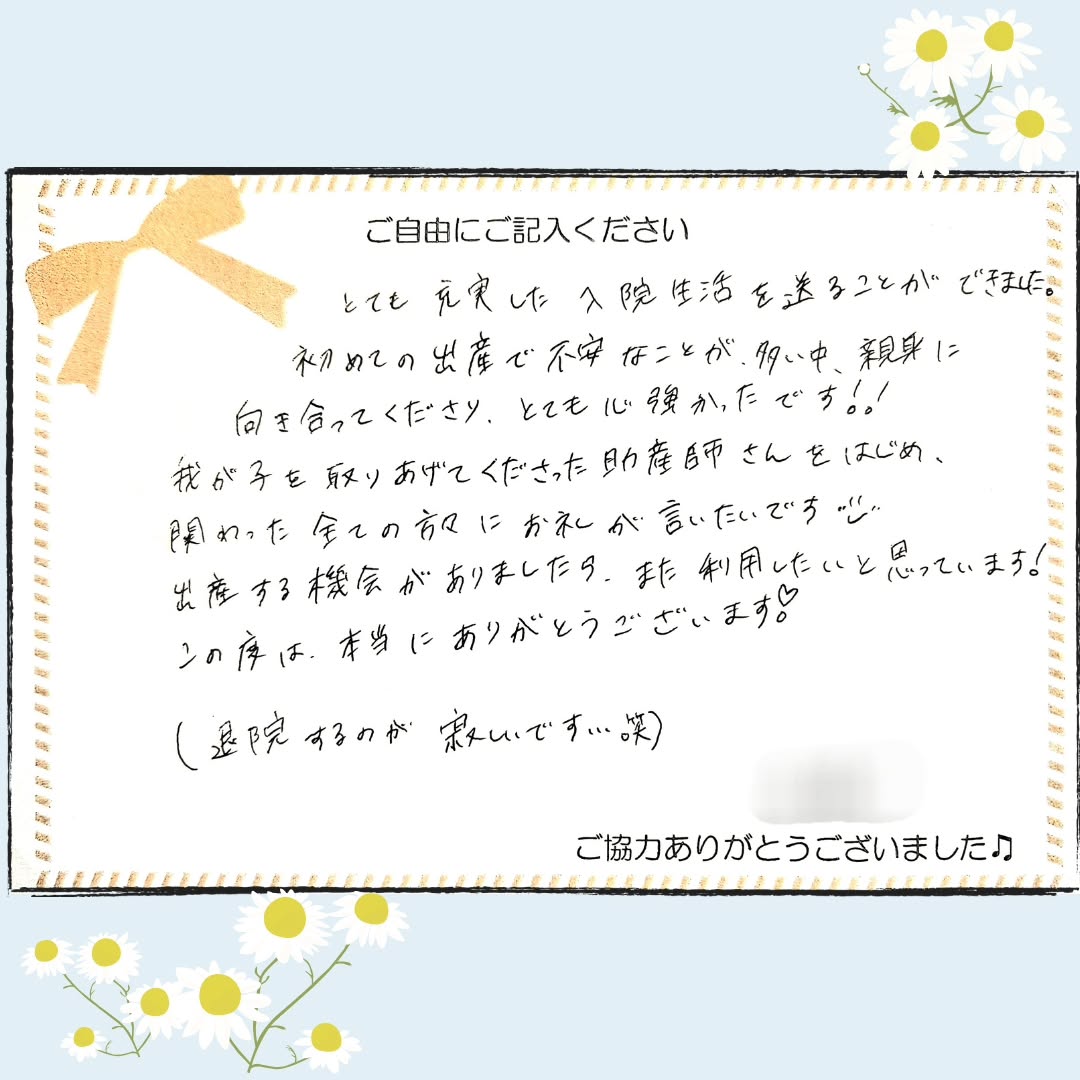 ご自由にご記入ください
とても 充実した 入院生活を送ることができました。
初めての出産で不安なことが、多い中、親身に
向き合ってくださり、とても心強かったです!!
我が子を取りあげてくださった助産師さんをはじめ、
関わった全ての方々にお礼が言いたいです
出産する機会がありましたら、また利用したいと思っています!
この度は、本当にありがとうございます♡
(退院するのが 寂しいです… 笑)
ご協力ありがとうございました♫